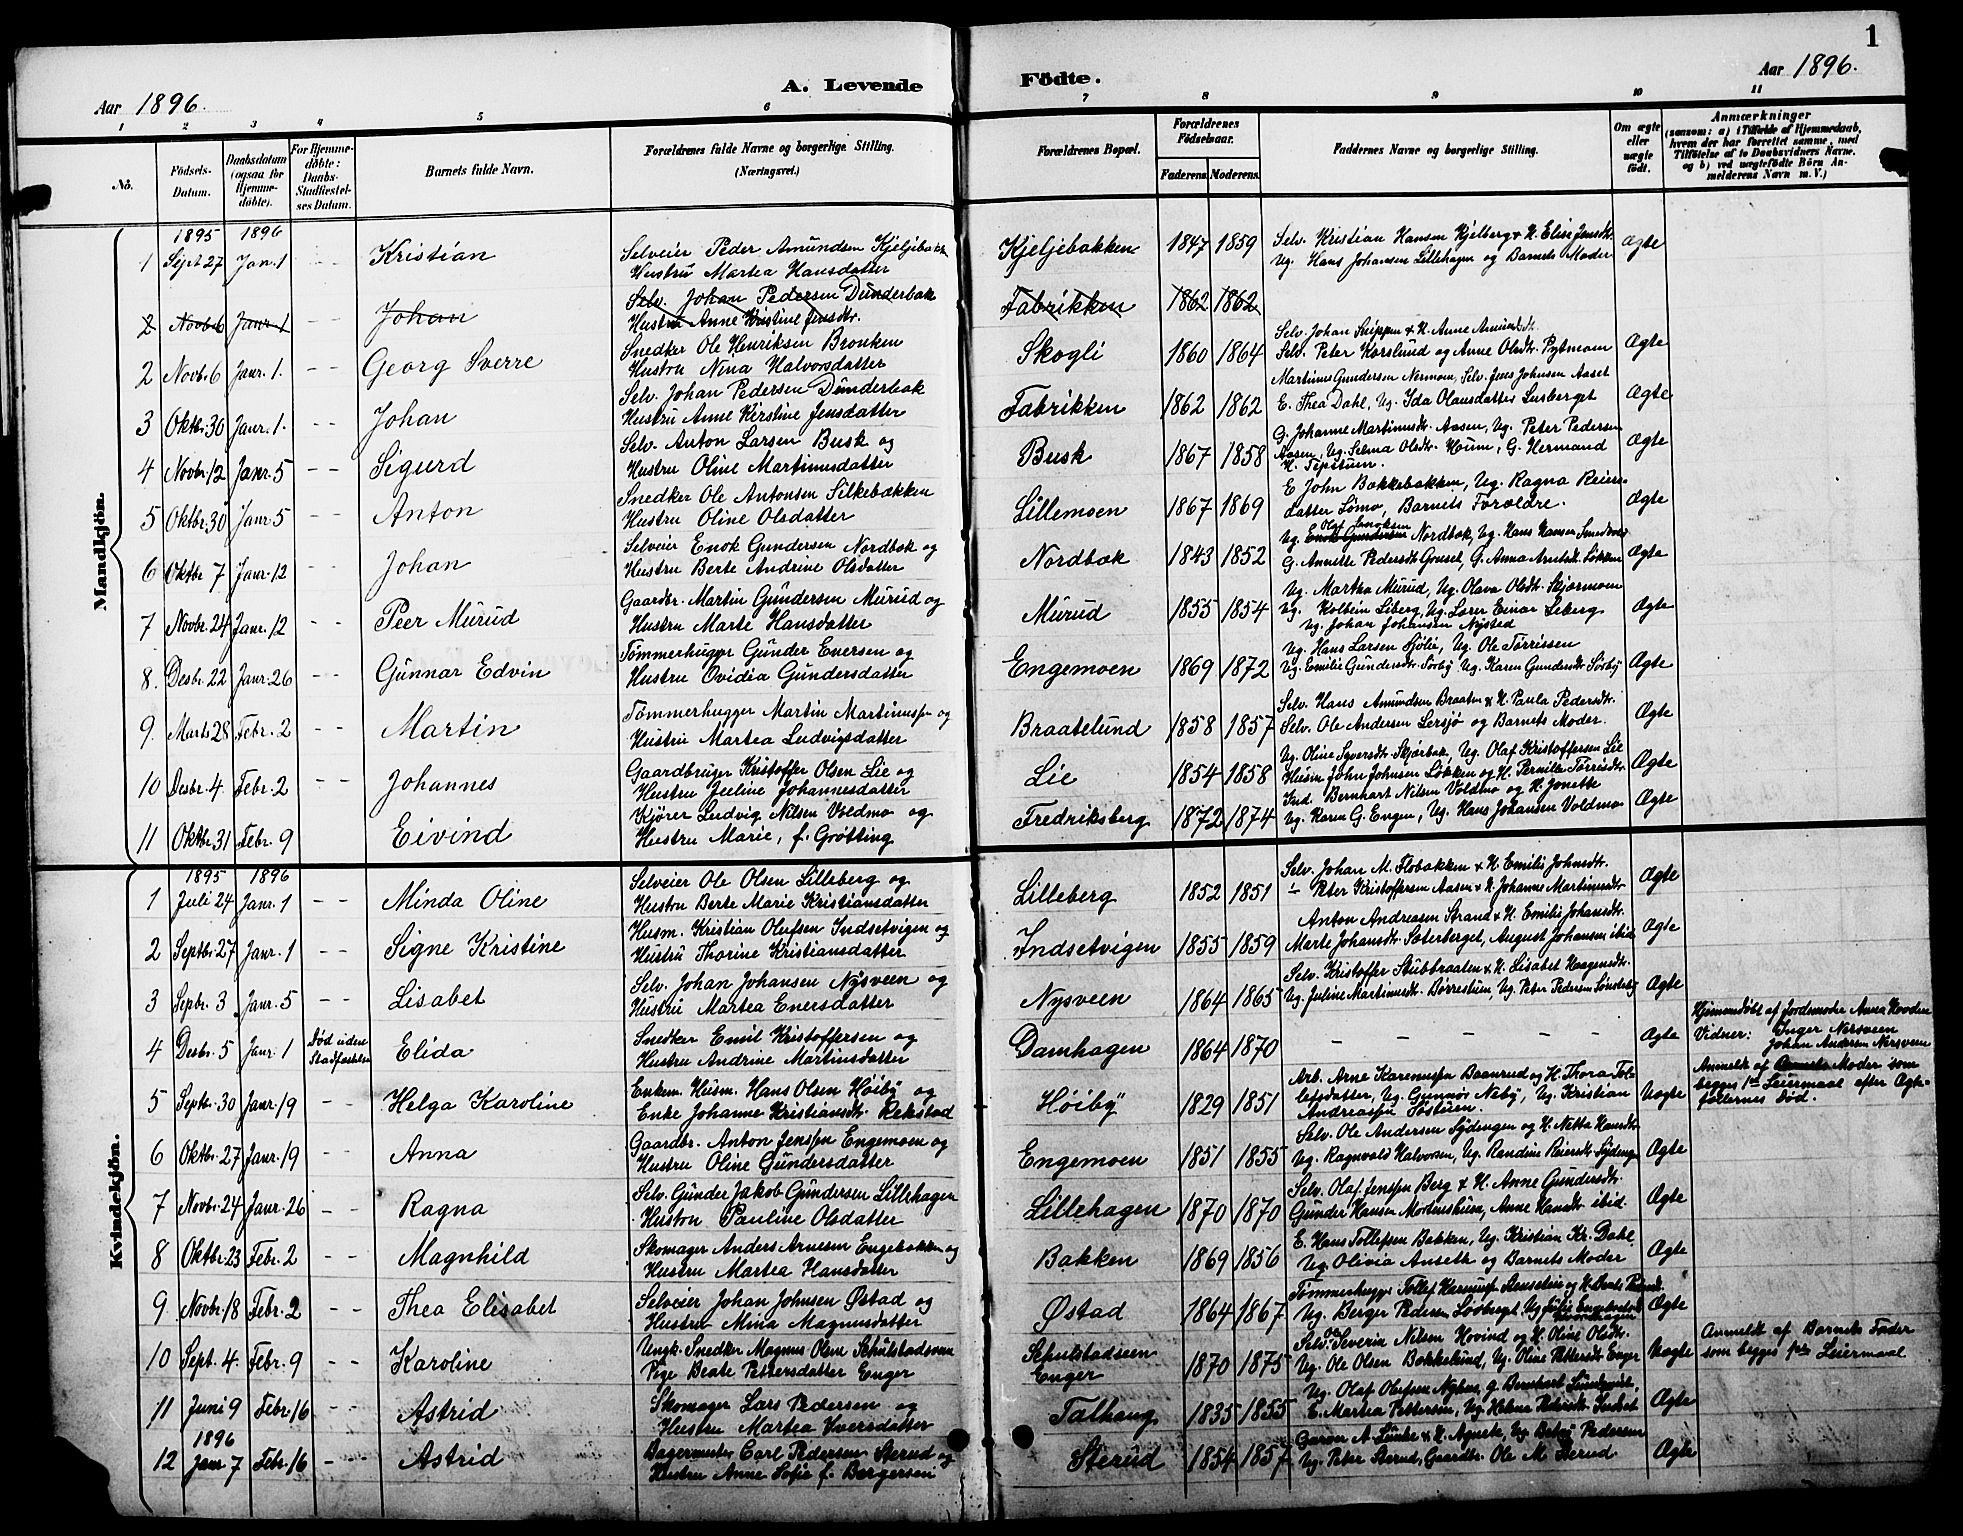 1
A. Levende Födte.
Aar 1896.
Aar 1896.
1 2 3 4 5 6 7 8 9 10 11
No.
Födsels-Datum.
Daabsdatum (ogsaa for Hjemme-döbte).
For Hjemme-döbte: Daabs-Stadfæstel-ses Datum.
Barnets fulde Navn.
Forældrenes fulde Navne og borgerlige Stilling.
(Næringsvei.)
Forældrenes Bopæl.
Forældrenes Födselsaar.
Faderens. Moderens.
Faddernes Navne og borgerlige Stilling.
Om ægte eller uægte födt.
Anmærkninger
(saasom: a) i Tilfælde af Hjemmedaab, hvem der har forrettet samme, med Tilföielse af to Daabsvidners Navne, og b) ved uægtefödte Börn Anmelderens Navn m. V.)
Mandkjön.
1895 1896
1 Sept 27 Jan. 1 - - Kristian Selveier Peder Amundsen Kjeljebakken Kjeljebakken 1847 1859 Selv. Kristian Hansen Kjelberg & H. Elise Jensdtr. Ægte
Hustru Martea Hansdatter Ug. Hans Johansen Lillehagen og Barnets Moder
2 Novbr 6 Janr. 1 - - Johan Selv. Johan Pedersen Dunderbak Fabrikken 1862 1862
Hustru Anne Kristine Jensdtr.
2 Novbr. 6 Janr. 1. - - Georg Sverre Snedker Ole Henriksen Bronken Skogli 1860 1864 Selv. Johan Snippen & H. Anne Amundsdtr. Ægte
Hustru Nina Halvorsdatter Selv. Peter Korslund og Anne Olsdtr. Pytmoen
3 Oktbr. 30 Janr. 1. - - Johan Selv. Johan Pedersen Dunderbak Fabrikken 1862 1862 Martinus Gundersen Nermoen, Selv. Jens Johnsen Aaset Ægte
Hustru Anne Kirstine Jensdatter E. Thea Dahl, Ug. Ida Olausdatter Lusberget
4 Novbr. 12 Janr. 5 - - Sigurd Selv. Anton Larsen Busk og Busk 1867 1858 G. Johanne Martinusdtr. Aasen, Ug. Peter Pedersen Ægte
Hustru Oline Martinusdatter Aasen, Ug. Selma Olsdtr. Houm, G. Hermand
5 Oktbr. 30 Janr. 5 - - Anton Snedker Ole Antonsen Silkebækken Lillemoen 1867 1869 E. John Bakkebakken, Ug. Ragna Reiers- Ægte
Hustru Oline Olsdatter datter Lömo, Barnets Forældre.
6 Oktbr 7 Janr. 12 - - Johan Selveier Enok Gundersen Nordbak og Nordbak 1843 1852 Ug. Enok Gundersen Nordbak, Ug. Hans Hansen Ægte
Hustru Berte Andrine Olsdatter G. Annette Pedersdtr.
7 Novbr. 24 Janr. 12 - - Peer Murud Gaardbr. Martin Gundersen Murud og Murud 1855 1854 Ug. Martha Murud, Ug. Olava Olsdtr. Skjærmoen Ægte
Hustru Marte Hansdatter Ug. Kolbein Liberg, Ug. Lars Einar Leberg
Ug. Johan Johansen Nysted
8. Desbr. 22 Janr. 26 - - Gunnar Edvin Tömmerhugger Gunder Eversen og Engemoen 1869 1872 Ug. Hans Larsen Sjölie, Ug. Ole Törrissen Ægte
Hustru Ovidia Gundersdatter Ug. Emilie Gundersdtr. Sörby Ug. Karen Gundersdtr Sörby
9. Marts 28 Febr. 2 - - Martin Tömmerhugger Martin Martinussen og Braatelund 1858 1857 Selv. Hans Amundsen Braaten & H. Paula Pedersdtr. Ægte
Hustru Martea Ludvigsdatter Selv. Ole Andersen Lersjö og Barnets Moder.
10 Desbr. 4 Febr. 2 - - Johannes Gaardbruger Kristoffer Olsen Lie og Lie 1854 1858 Ug. Oline Syversdtr. Skjærbak, Ug. Olaf Kristoffersen Lie Ægte
Hustru Juline Johannesdatter Husm John Johnsen Løkken og H. Pernille Törrisdtr.
11 Oktbr. 31 Febr. 9 - - Eivind Kjører Ludvig Nilsen Voldmo og Fredriksberg 1872 1874 Ind. Bernhart Nilsen Voldmo og H. Jonette Ægte
Hustru Marie, f. Grötting Ug. Karen G. Engen, Ug. Hans Johansen Voldmo
Kvindekjön.
1895 1896
1 Juli 24 Janr. 1 - - Minda Oline Selveier Ole Olsen Lilleberg og Lilleberg 1852 1851 Selv. Johan M. Flobakken & H. Emilie Johnsdtr. Ægte
Hustru Berte Marie Kristiansdatter Peter Kristoffersen Aasen & H. Johanne Martinusdtr
2 Septbr. 27 Janr. 1 - - Signe Kristine Husm. Kristian Olufsen Indsetvigen og Indsetvigen 1855 1859 Anton Andreasen Strand & H. Emilie Johansdtr. Ægte
Hustru Thorine Kristiansdatter Marte Johansdtr Sæterberget, August Johansen ibid
3 Sepbr. 3 Janr. 5 - - Lisabet Selv. Johan Johansen Nysveen og Nysveen 1864 1865 Selv. Kristoffer Stubbraaten & H. Lisabet Haagensdtr. Ægte
Hustru Martea Enersdatter Ug. Juline Martinusdtr. Börrestuen, Ug. Peter Pedersen
4 Desbr. 5 Janr. 1 Død uden Stadfæstelse Elida Snedker Emil Kristoffersen og Damhagen 1864 1870 - - - - Ægte Hjemmedöbt af Jordemoder Anna Hovden
Hustru Andrine Martinsdatter Vidner: Inger Nersveen
Johan Andersen Nersveen
5 Septbr. 30 Janr. 19 - - Helga Karoline Enkem. Husm. Hans Olsen Höiby og Höiby 1829 1851 Arb. Arne Karenussen Baanrud og H. Thora Tol- Uægte Anmeldt af Moder som
Enke Johanne Kristiansdtr. Rekstad lefsdatter, Ug. Gunnor Neby, Ug. Kristian begges 1ste Leiermaal efter Ægte-
Andreassen fællernes Död.
6 Oktbr. 27 Janr. 19 - - Anna Gaardbr. Anton Jenssen Engemoen og Engemoen 1851 1855 Selv. Ole Andersen Sydengen og H. Netta Hansdtr. Ægte
Hustru Oline Gundersdatter Ug. Ragnvald Halvorsen, Ug. Randine Reiersdtr Sydenge
7 Novbr. 24 Janr. 26 - - Ragna Selv. Gunder Jakob Gundersen Lillehagen Lillehagen 1870 1870 Selv. Olaf Jenssen Berg & H. Anne Gundersdtr. Ægte
Hustru Pauline Olsdatter Gunder Hansen Mortenshuen, Anne Hansdtr ibid.
8 Oktbr. 23 Febr. 2 - - Magnhild Skomager Anders Arnesen Engebakken og Bakken 1869 1856 E. Hans Tollefsen Bakken, Ug. Kristian Kr. Dahl, Ægte
Hustru Martea Hansdatter Ug. Olivia Anseth og Barnets Moder
9 Novbr. 18 Febr. 2 - - Thea Elisabet Selveier Johan Johnsen Østad og Østad 1864 1867 Tömmerhugger Tollef Ægte
Hustru Mina Magnusdatter Ug. Berger Pedersen
10 Sept. 4. Febr. 9 - - Karoline Ungk. Snedker Magnus Olsen Schulstadseen Schulstadseen 1870 1875 Selv. Severin Nilsen Hovind og H. Oline Olsdtr. Uægte Anmeldt af Barnets Fader
Pige Beate Pettersdatter Enger Enger Ug. Ole Olsen Bakkelund, Ug. Oline Pettersdtr Enger som begges 1ste Leiermaal
11 Juni 9 Febr. 16 - - Astrid Skomager Lars Pedersen og Talhaug 1835 1855 Ug. Olaf Olufsen Ægte
Hustru Martea Iversdatter E. Martea Pettersen, Ug. Helene
1896
12 Janr 7 Febr. 16 - - Astrid Bagermester Carl Pedersen Sterud og Sterud 1854 1857 Garver A. Lunke & H. Agnete, Ug. Betsy Pedersen Ægte
Hustru Anne Sofie f. Bergersen Ug. Peter Sterud, Gaardbr. Ole M Sterud